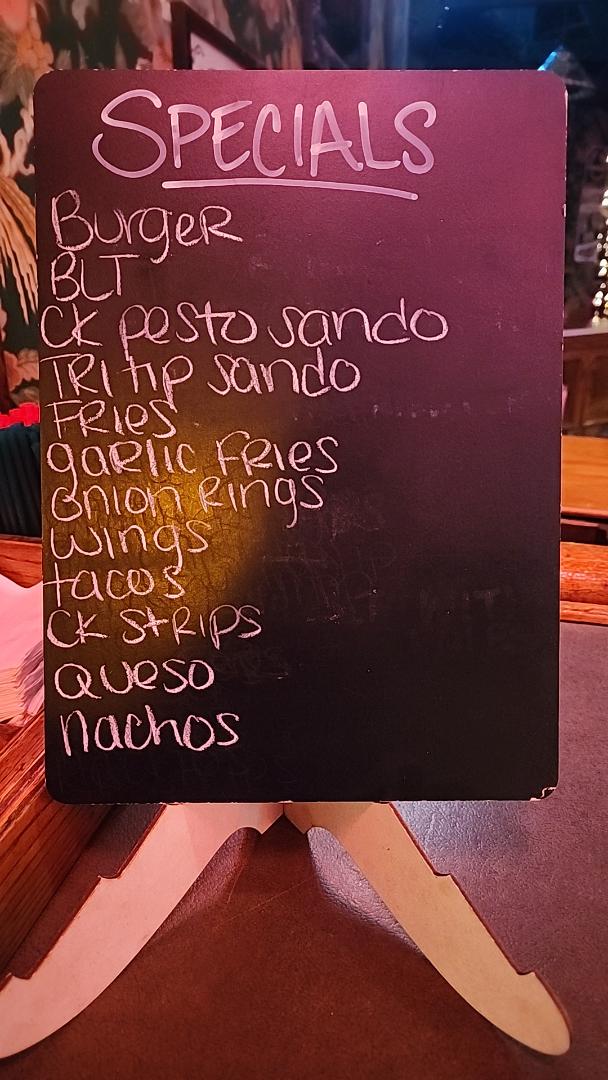 SPECIALS
BurgeR
BLT
CK pesto sando
TRi tip sando
FRies
gaRlic FRies
onion Rings
wings
tacos
CK StRips
Queso
nachos